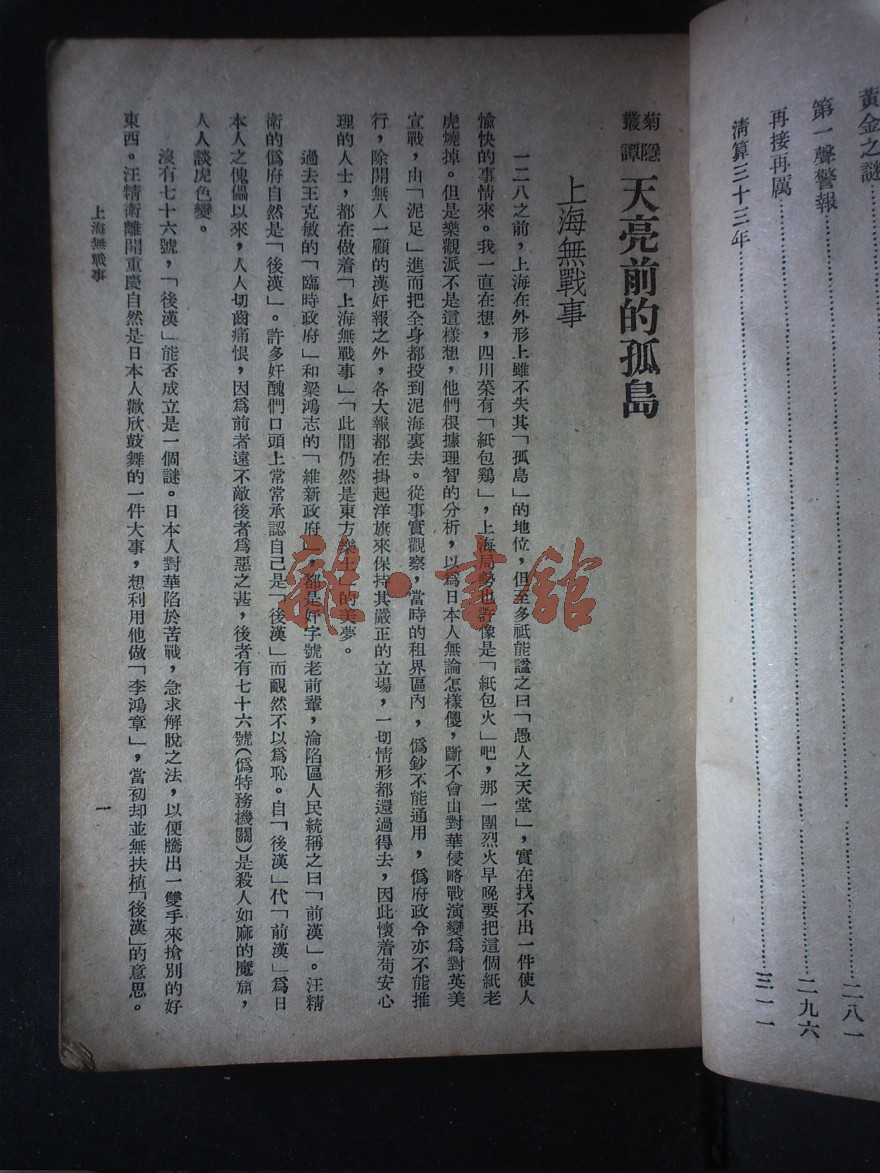 黃金之謎……二八一
第一聲警報……二九六
再接再厲
清算三十三年……三一一
菊隱叢譚
天亮前的孤島
上海無戰事
一二八之前，上海在外形上雖不失其「孤島」的地位，但至多祇能謚之曰「愚人之天堂」，實在找不出一件使人
愉快的事情來。我一直在想，四川菜有「紙包鷄」，上海局勢也許像是「紙包火」吧，那一團烈火早晚要把這個紙老
虎燒掉。但是樂觀派不是這樣想，他們根據理智的分析，以爲日本人無論怎樣傻，斷不會由對華侵略戰演變爲對英美
宣戰，由「泥足」進而把全身都投到泥海裏去。從事實觀察，當時的租界區內，僞鈔不能通用，僞府政令亦不能推
行，除開無人一顧的漢奸報之外，各大報都在掛起洋旗來保持其嚴正的立場，一切情形都還過得去，因此懷着苟安心
理的人士，都在做着「上海無戰事」「此間仍然是東方樂土」的美夢。
過去王克敏的「臨時政府」和梁鴻志的「維新政府」，都是奸字號老前輩，淪陷區人民統稱之曰「前漢」。汪精
衛的僞府自然是「後漢」。許多奸醜們口頭上常常承認自己是「後漢」而靦然不以爲恥。自「後漢」代「前漢」爲日
本人之傀儡以來，人人切齒痛恨，因爲前者遠不敵後者爲惡之甚，後者有七十六號(僞特務機關)是殺人如麻的魔窟，
人人談虎色變。
沒有七十六號，「後漢」能否成立是一個謎。日本人對華陷於苦戰，急求解脫之法，以便騰出一雙手來搶別的好
東西。汪精衛離開重慶自然是日本人歡欣鼓舞的一件大事，想利用他做「李鴻章」，當初却並無扶植「後漢」的意思。
上海無戰事
一
雜·書館